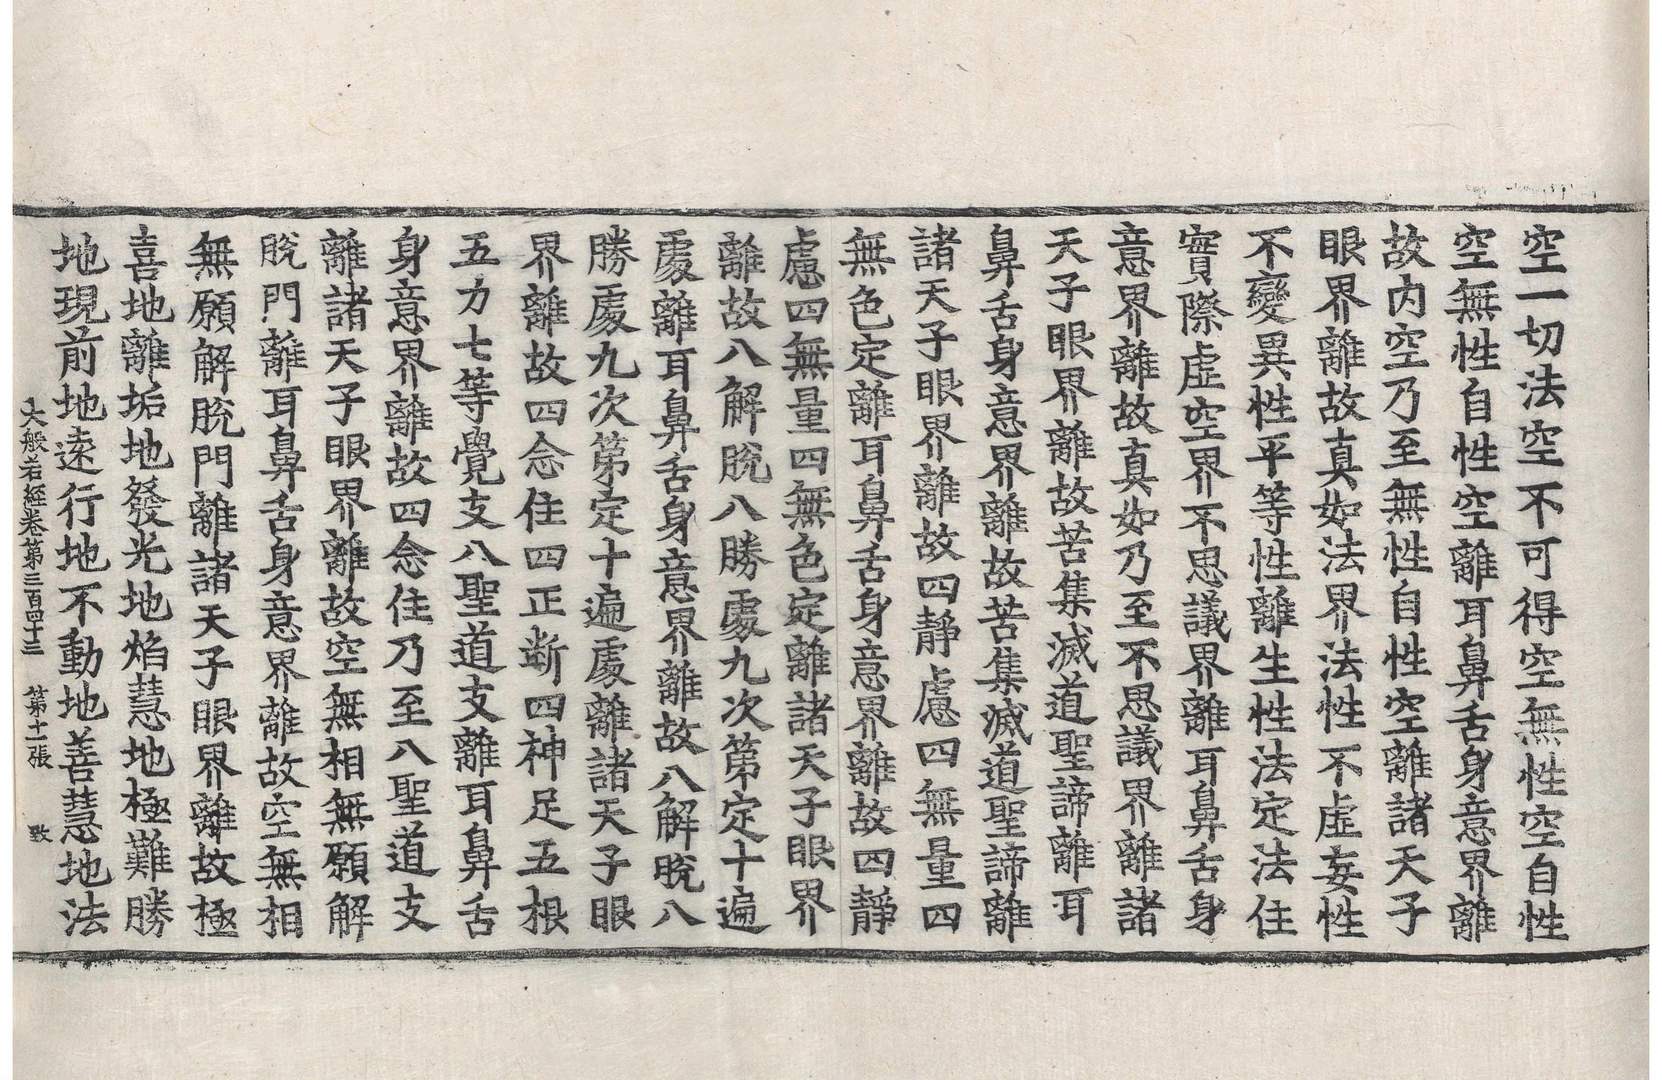 空一切法空不可得空無性空自性
空無性自性空離耳鼻舌身意界離
故內空乃至無性自性空離諸天子
眼界離故真如法界法性不虛妄性
不變異性平等性離生性法定法住
實際虛空界不思議界離耳鼻舌身
意界離故真如乃至不思議界離諸
天子眼界離故苦集滅道聖諦離耳
鼻舌身意界離故苦集滅道聖諦離
諸天子眼界離故四靜慮四無量四
無色定離耳鼻舌身意界離故四靜
慮四無量四無色定離諸天子眼界
離故八解脫八勝處九次第定十遍
處離耳鼻舌身意界離故八解脫八
勝處九次第定十遍處離諸天子眼
界離故四念住四正斷四神足五根
五力七等覺支八聖道支離耳鼻舌
身意界離故四念住乃至八聖道支
離諸天子眼界離故空無相無願解
脫門離耳鼻舌身意界離故空無相
無願解脫門離諸天子眼界離故極
喜地離垢地發光地焰慧地極難勝
地現前地遠行地不動地善慧地法
大般若經卷第三百四十三 第十一張 致